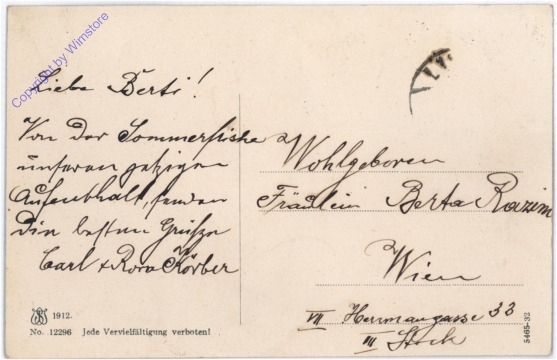 Copyright by Wimstore
Liebe Berti!
Von der Sommerfrische
unseren jetzigen
Aufenthalt, senden
Dir besten Grüsze
Carl + Rosa Körber
Wohlgeboren
Fräulein Berta
Wien
VII Hermanngasse 33
III Stock
1912.
No. 12296 Jede Vervielfältigung verboten!
5465-32